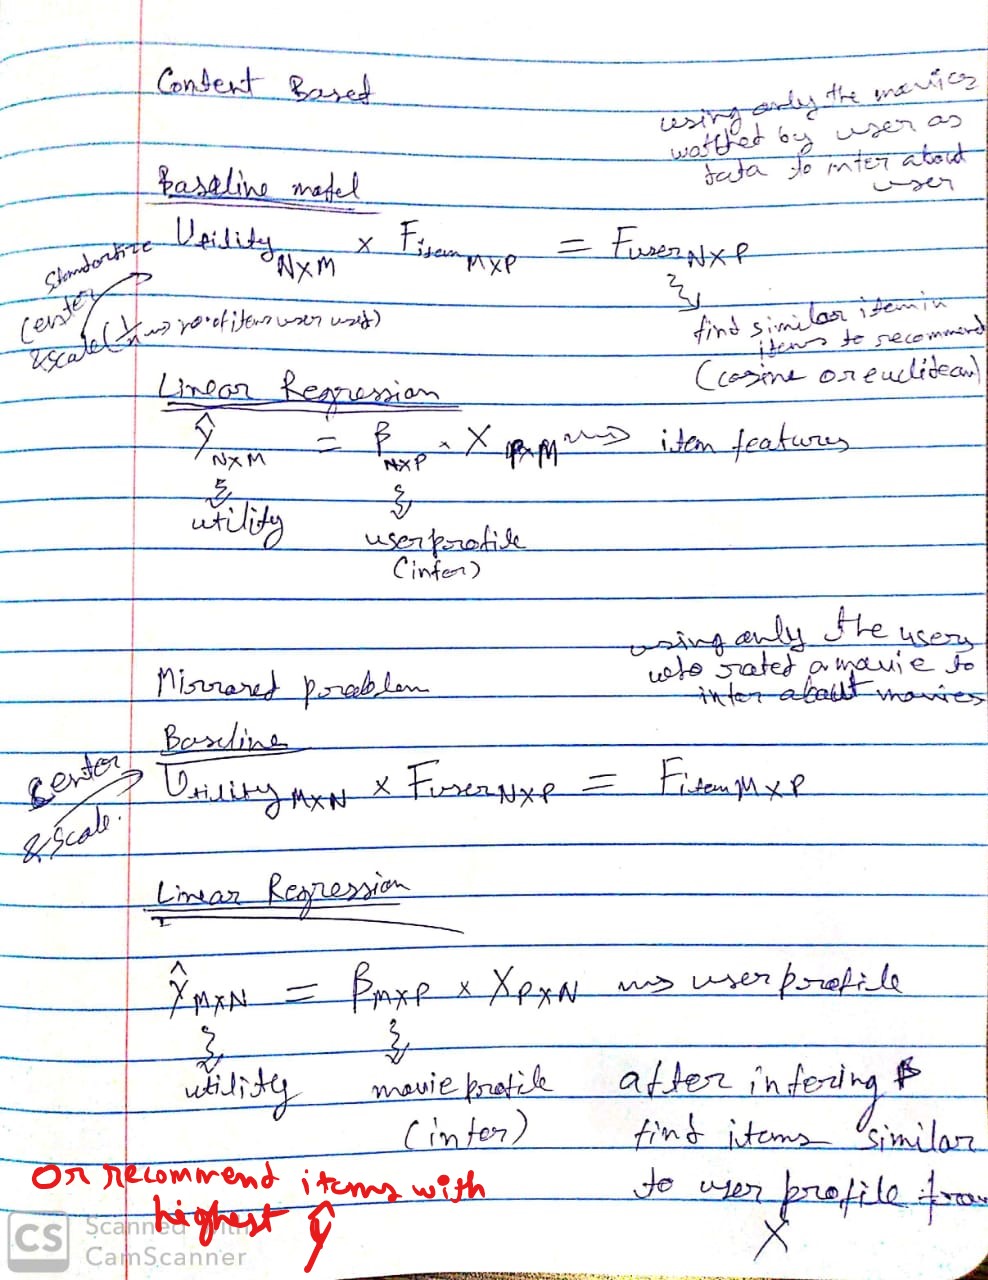 Content Based
using only the movies
watched by user as
data to infer about
user
Baseline model
Utility N×M × Fitem M×P = Fuser N×P
Standardize
Center
& scale (1/n → no. of items user used)
find similar item in
items to recommend
(cosine or euclidean)
Linear Regression
Ŷ N×M = β N×P × X P×M → item features
utility
user profile
(infer)
using only the users
who rated a movie to
infer about movies
Mirrored problem
Baseline
Center
& Scale.
Utility M×N × Fuser N×P = Fitem M×P
Linear Regression
Ŷ M×N = β M×P × X P×N → user profile
utility
movie profile
(infer)
after infering β
find items similar
to user profile from
X
Or recommend items with
highest ŷ
CS Scanned with
CamScanner